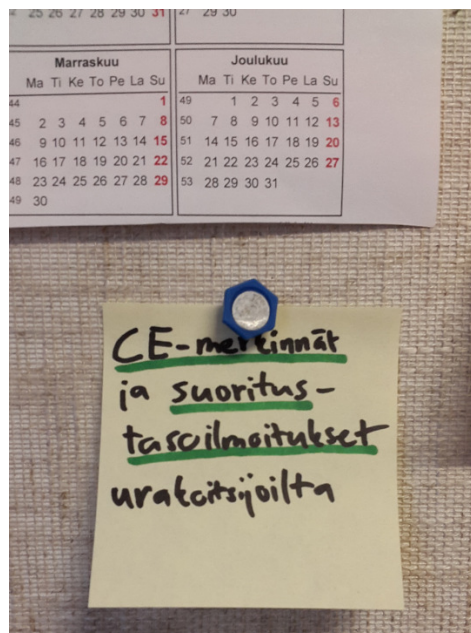 25 26 27 28 29 30 31
29 30
Marraskuu
Ma Ti Ke To Pe La Su
44 1
45 2 3 4 5 6 7 8
46 9 10 11 12 13 14 15
47 16 17 18 19 20 21 22
48 23 24 25 26 27 28 29
49 30
Joulukuu
Ma Ti Ke To Pe La Su
49 1 2 3 4 5 6
50 7 8 9 10 11 12 13
51 14 15 16 17 18 19 20
52 21 22 23 24 25 26 27
53 28 29 30 31
CE-merkinnät
ja suoritus-
tasoilmoitukset
urakoitsijoilta